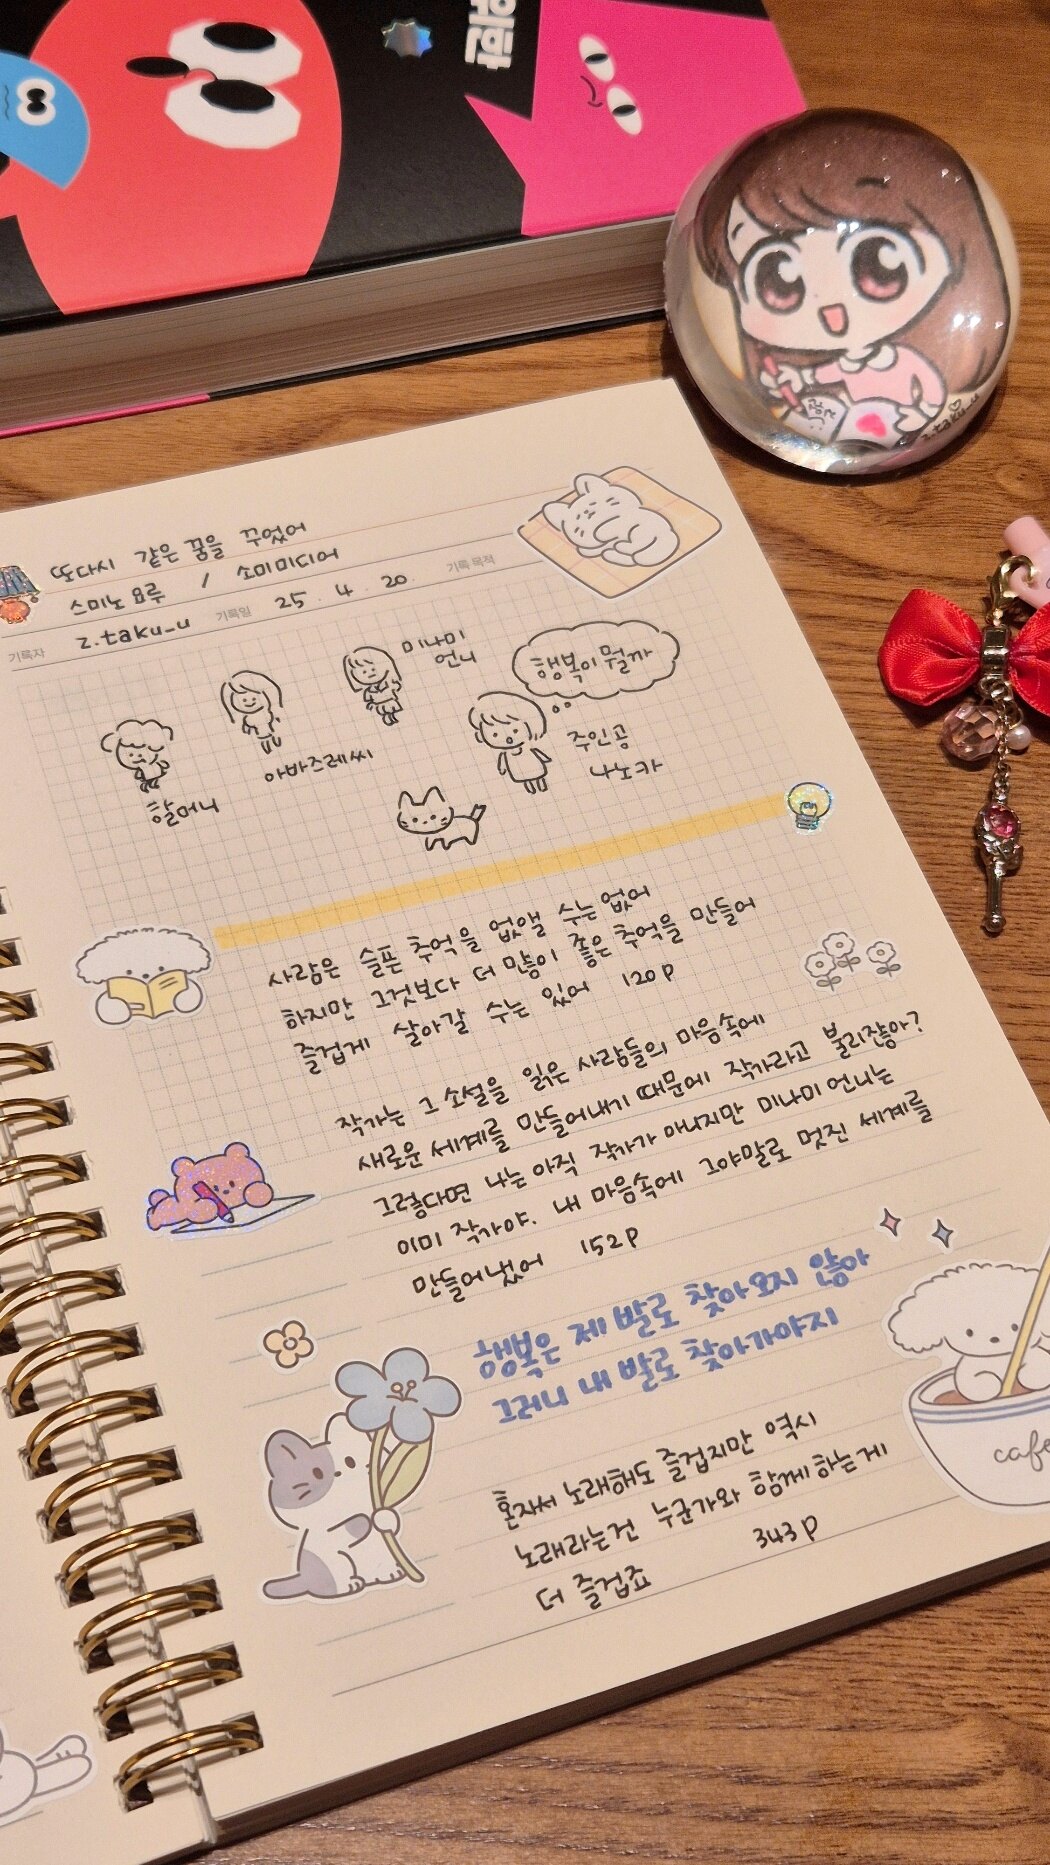 또다시 같은 꿈을 꾸었어
스미노 요루 / 소미미디어
기록자 z.taku_u 기록일 25. 4. 20. 기록 목적
할머니
아바즈레씨
미나미
언니
행복이 뭘까
주인공
나노카
사람은 슬픈 추억을 없앨 수는 없어
하지만 그것보다 더 많이 좋은 추억을 만들어
즐겁게 살아갈 수는 있어 120p
작가는 그 소설을 읽은 사람들의 마음속에
새로운 세계를 만들어내기 때문에 작가라고 불리잖아?
그렇다면 나는 아직 작가가 아니지만 미나미 언니는
이미 작가야. 내 마음속에 그야말로 멋진 세계를
만들어냈어 152p
행복은 제 발로 찾아오지 않아
그러니 내 발로 찾아가야지
혼자서 노래해도 즐겁지만 역시
노래라는건 누군가와 함께 하는게
더 즐겁죠 343p
cafe
z.taku_u